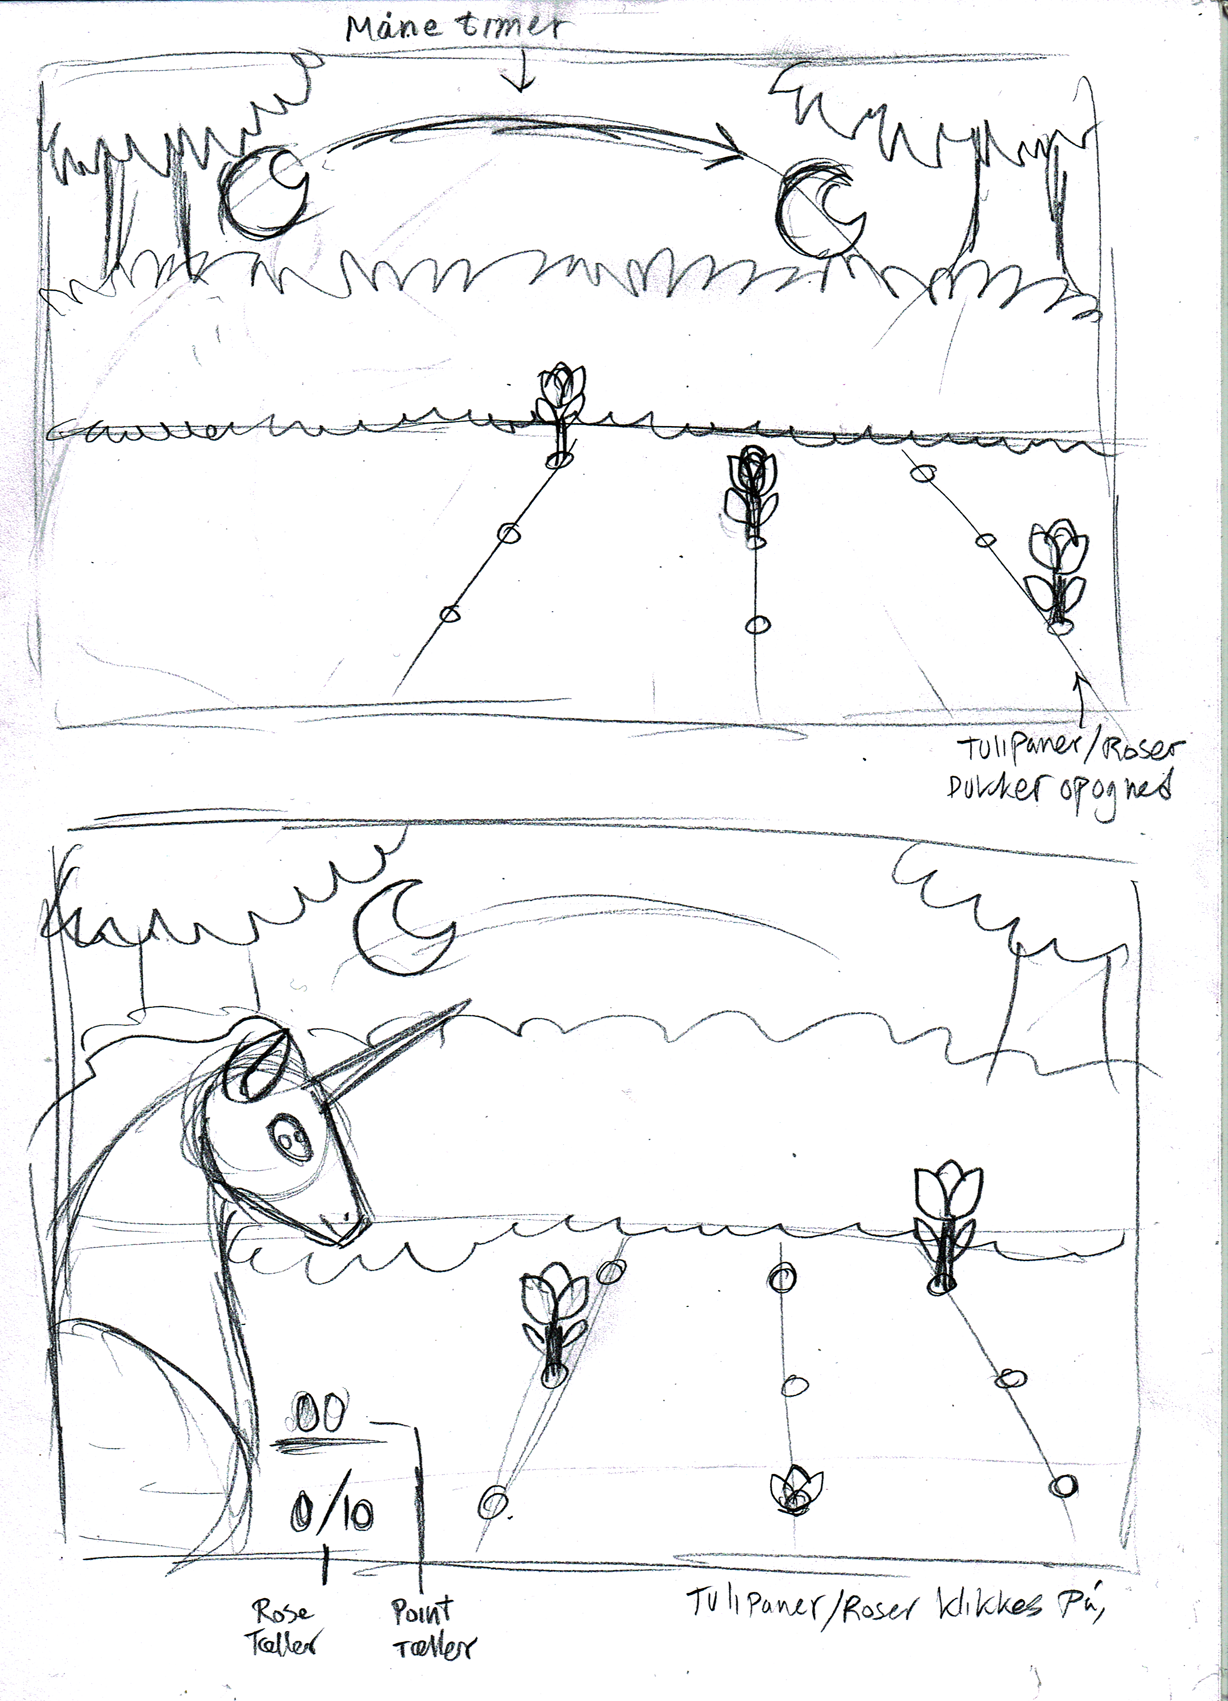 Måne timer
Tulipaner/Roser
Dukker op og ned
00
0/10
Rose
Tæller
Point
Tæller
Tulipaner/Roser klikkes På,